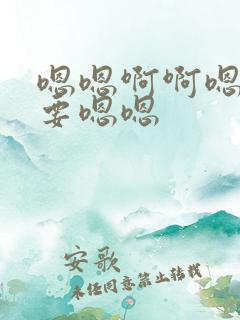 嗯嗯啊啊嗯
要嗯嗯
安歌
未经同意禁止转载